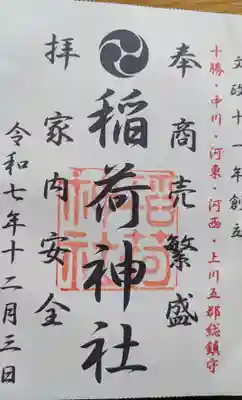 文政十一年創立
十勝・中川・河東・河西・上川五郡総鎮守
奉 商売繁盛
稲荷神社
稲荷神社
拝 家内安全
令和七年十二月三日